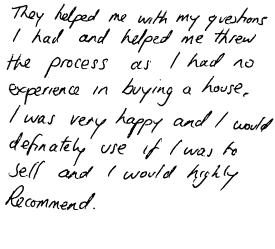 They helped me with my questions
I had and helped me threw
the process as I had no
experience in buying a house.
I was very happy and I would
definately use if I was to
sell and I would highly
Recommend.